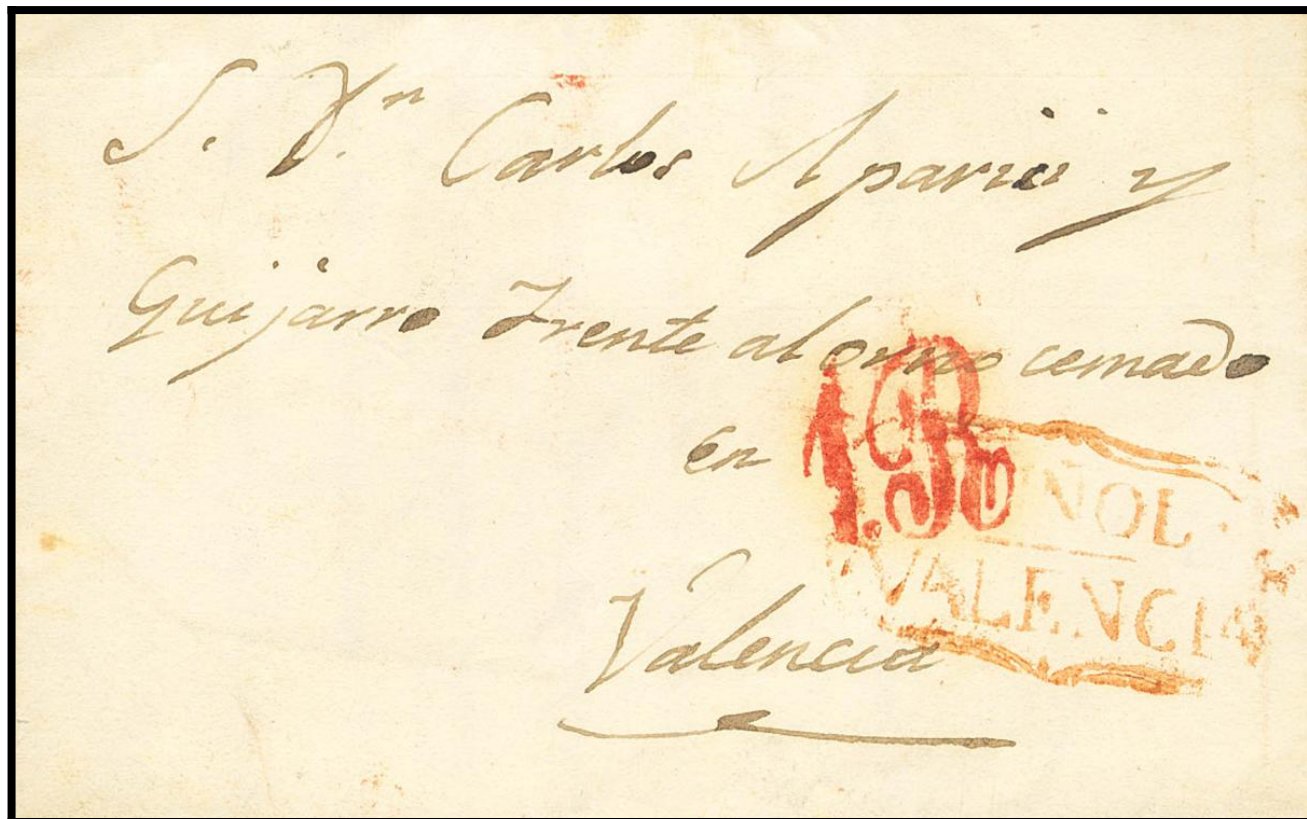 S. Dn. Carlos Aparici y
Quijarro Frente al orno cemado
en
1.R
ÑOL
VALENCIA
Valencia